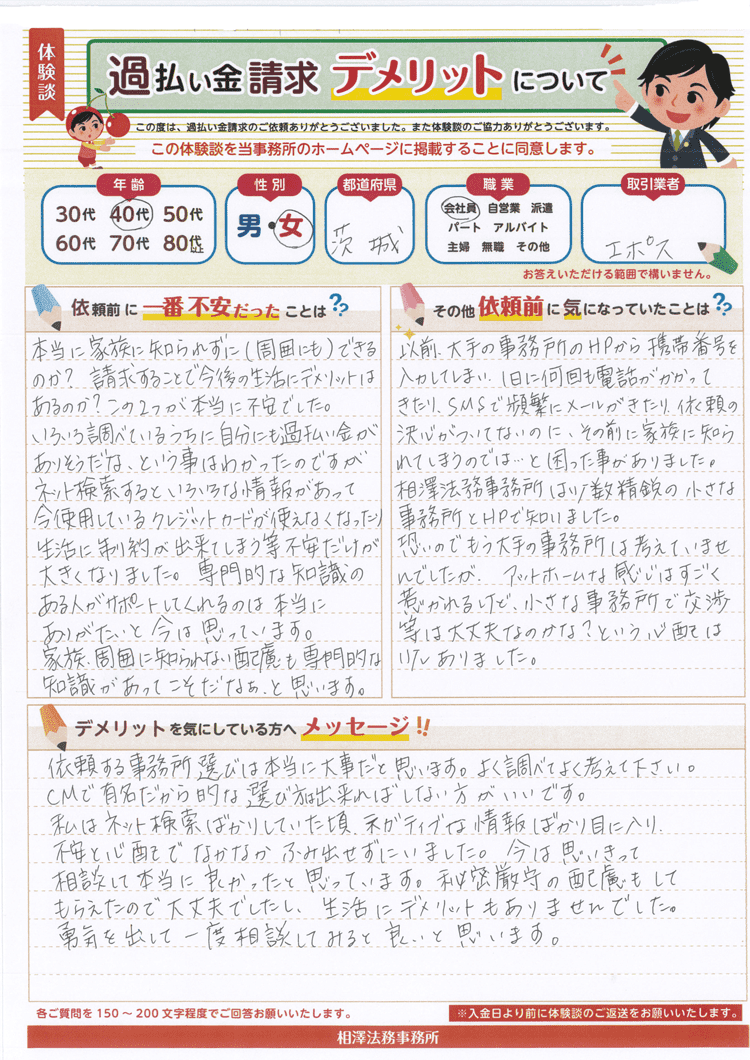 体験談
過払い金請求 デメリットについて
この度は、過払い金請求のご依頼ありがとうございました。また体験談のご協力ありがとうございます。
この体験談を当事務所のホームページに掲載することに同意します。
年齢
30代 40代 50代
60代 70代 80代以上
性別
男・女
都道府県
茨城
職業
会社員 自営業 派遣
パート アルバイト
主婦 無職 その他
取引業者
エポス
お答えいただける範囲で構いません。
依頼前に一番不安だったことは??
本当に家族に知られずに(周囲にも)できる
のか? 請求することで今後の生活にデメリットは
あるのか?この2つが本当に不安でした。
いろいろ調べているうちに自分にも過払い金が
ありそうだな、という事はわかったのですが
ネット検索するといろいろな情報があって
今使用しているクレジットカードが使えなくなったり
生活に制約が出来てしまう等不安だけが
大きくなりました。専門的な知識の
ある人がサポートしてくれるのは本当に
ありがたいと今は思っています。
家族、周囲に知られない配慮も専門的な
知識があってこそだなぁ、と思います。
その他依頼前に気になっていたことは??
以前、大手の事務所のHPから携帯番号を
入力してしまい、1日に何回も電話がかかって
きたり、SMSで頻繁にメールがきたり、依頼の
決心がついてないのに、その前に家族に知ら
れてしまうのでは…と困った事がありました。
相澤法務事務所は少数精鋭の小さな
事務所とHPで知いました。
恐いのでもう大手の事務所は考えていませ
んでしたが、アットホームな感じはすごく
惹かれるけど、小さな事務所で交渉
等は大丈夫なのかな?という心配は
少しありました。
デメリットを気にしている方へメッセージ!!
依頼する事務所選びは本当に大事だと思います。よく調べてよく考えて下さい。
CMで有名だから的な選び方は出来ればしない方がいいです。
私はネット検索ばかりしていた頃、ネガティブな情報ばかり目に入り、
不安と心配でなかなかふみ出せずにいました。今は思いきって
相談して本当に良かったと思っています。秘密厳守の配慮もして
もらえたので大丈夫でしたし、生活にデメリットもありませんでした。
勇気を出して一度相談してみると良いと思います。
各ご質問を150~200文字程度でご回答お願いいたします。
※入金日より前に体験談のご返送をお願いいたします。
相澤法務事務所